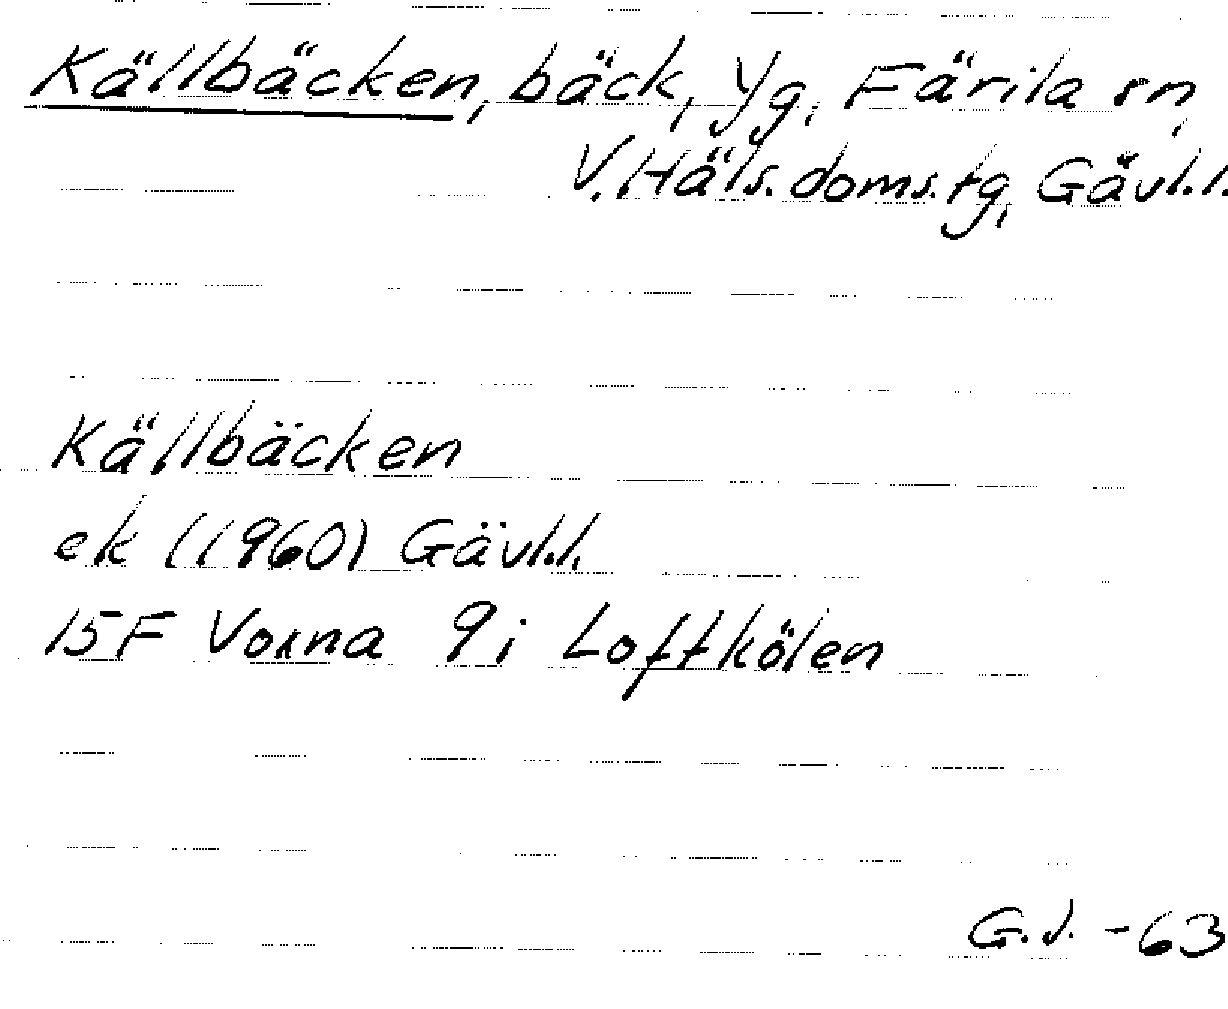 Källbäcken, bäck, Yg, Färila sn,
V. Häls. doms.tg, Gävl.l.
Källbäcken
ek (1960) Gävl.l.
15F Voxna 9i Loftkölen
G.J. -63